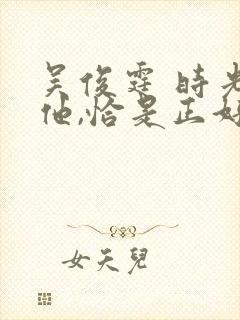 吴俊霆 時光
他,恰是正好
女天兒